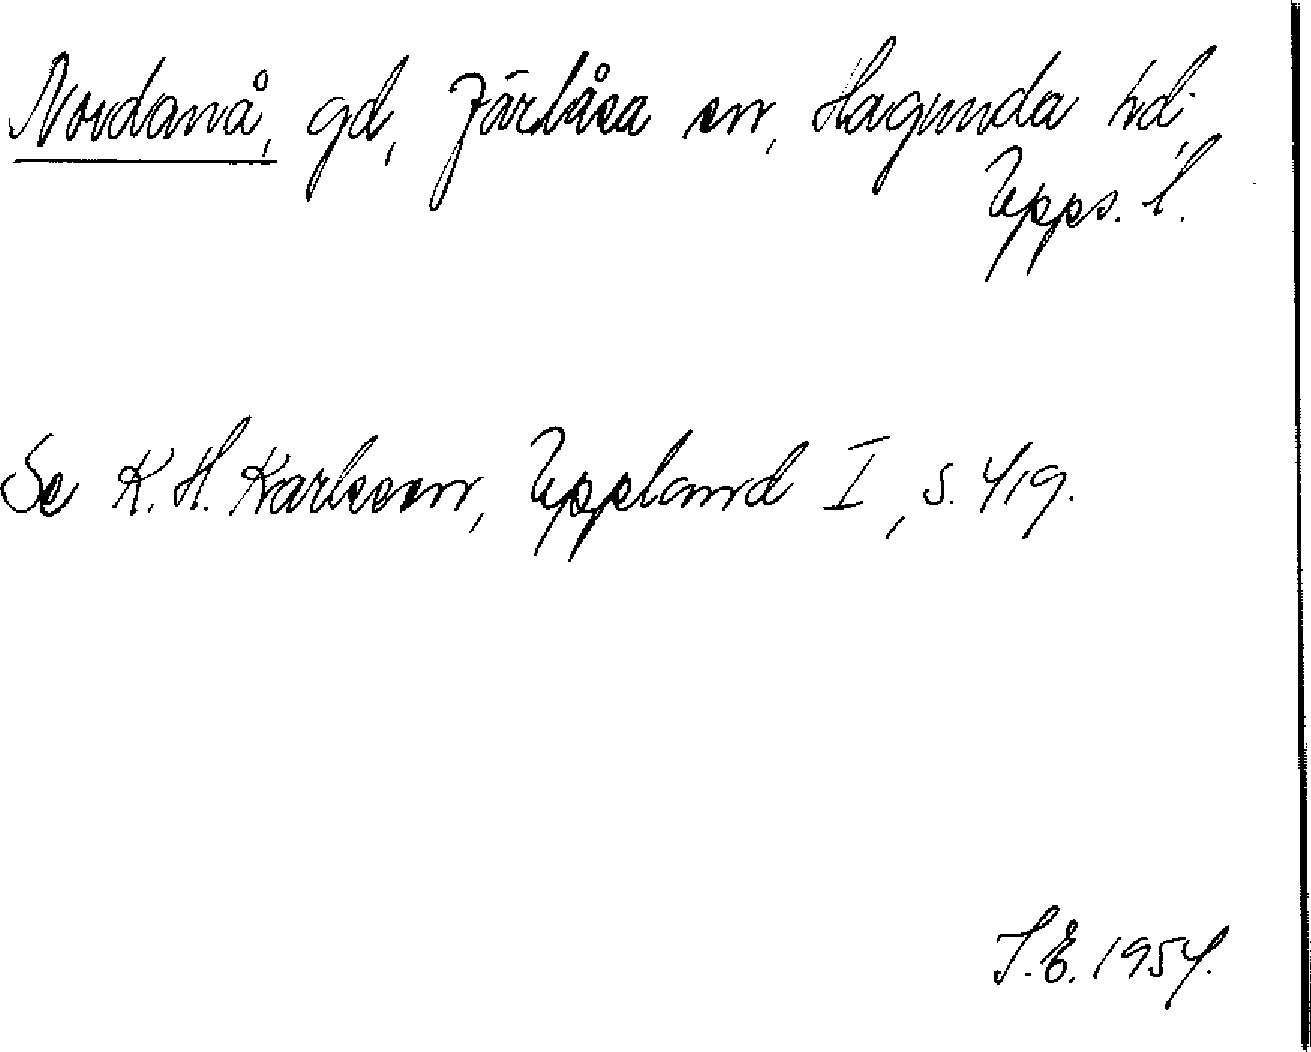 Nordanå, gd, Järlåsa sn, Hagunda hd,
Upps. l.
Se K. H. Karlsson, Uppland I, s. 419.
S.E. 1954.